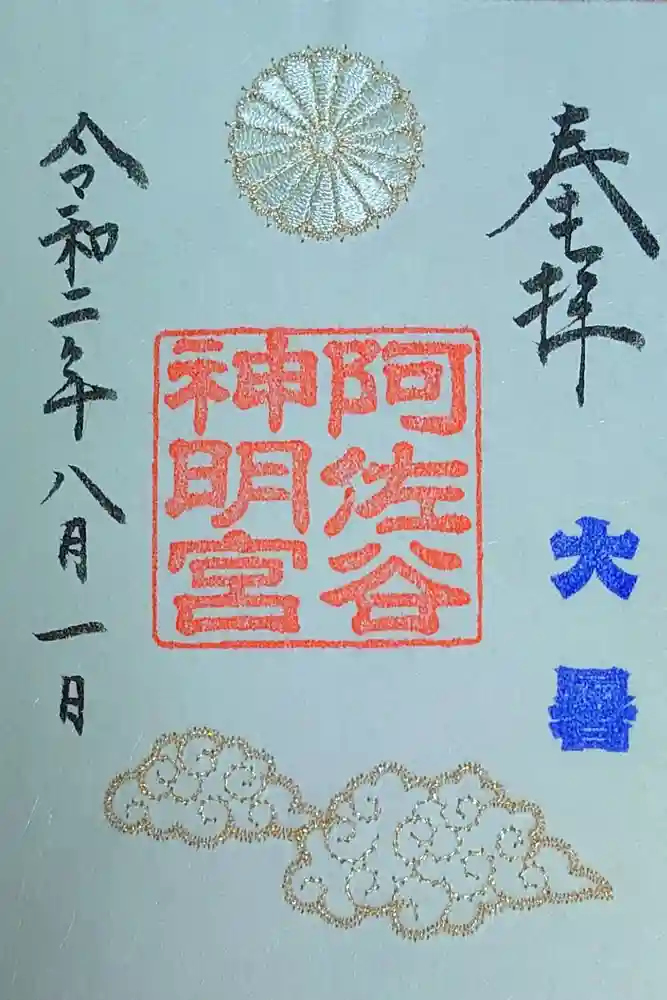 奉拝
大暑
阿佐谷
神明宮
令和二年八月一日